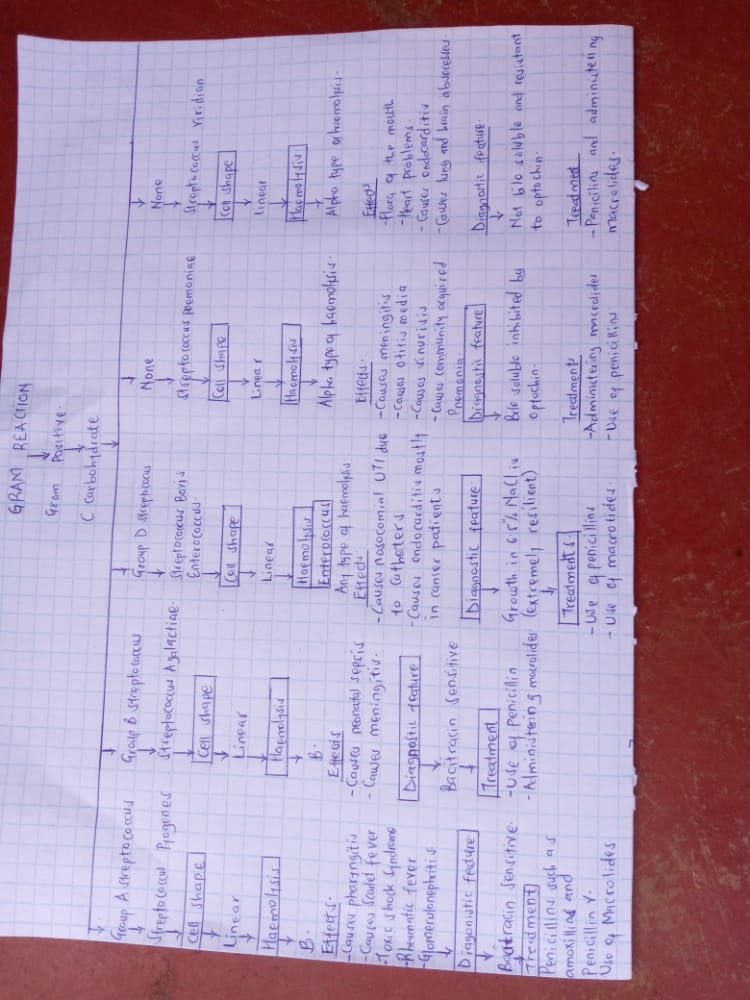 GRAM REACTION
Gram Positive.
C Carbohydrate
Group A Streptococcus
Streptococcus Pyogenes
Cell shape
Linear
Haemolysis
B.
Effects.
-Causes pharyngitis
-Causes Scalet fever
-Toxic shock Syndrome
-Rheumatic fever
-Glomerulonephritis.
Diagonistic feature
Bacitracin Sensitive.
Treatment
Penicillins such as
amoxillins and
Penicillin V.
Use of Macrolides
Group B Streptococcus
Streptococcus Agalactiae.
Cell shape
Linear
Haemolysis
B.
Effects
- Causes neonatal sepsis
- Causes meningitis.
Diagnostic feature
Bacitracin Sensitive
Treatment
- Use of Penicillin
- Administering macrolides
Group D streptococcus
Streptococcus Boris
Enterococcus.
Cell shape
Linear
Haemolysis
Enterococcus
Any type of haemolysis
Effects
- Causes nosocomial UTI due
to Catheters
- Causes endocarditis mostly
in cancer patients
Diagnostic feature
Growth in 6.5% NaCl is
(extremely resilient)
Treatments
- Use of penicillins
- Use of macrolides.
None
Streptococcus pnemoniae
Cell shape
Linear
Haemolysis
Alpha type of haemolysis.
Effects.
- Causes meningitis
- Causes otitis media
- Causes sinurisis
- Causes community acquired
Pnemonia.
Diagnostic feature
Bile soluble inhibited by
optochin.
Treatment
- Administering macrolides
- Use of penicillins
None
Streptococcus Viridian
Cell shape
Linear
Haemolysis
Alpha type of haemolysis.
Effects
- Flora of the mouth
- Heart problems.
- Causes endocarditis
- Causes lung and brain abscesses.
Diagnostic feature.
Not bile soluble and resistant
to optochin.
Treatment
- Penicillins and administering
macrolides.